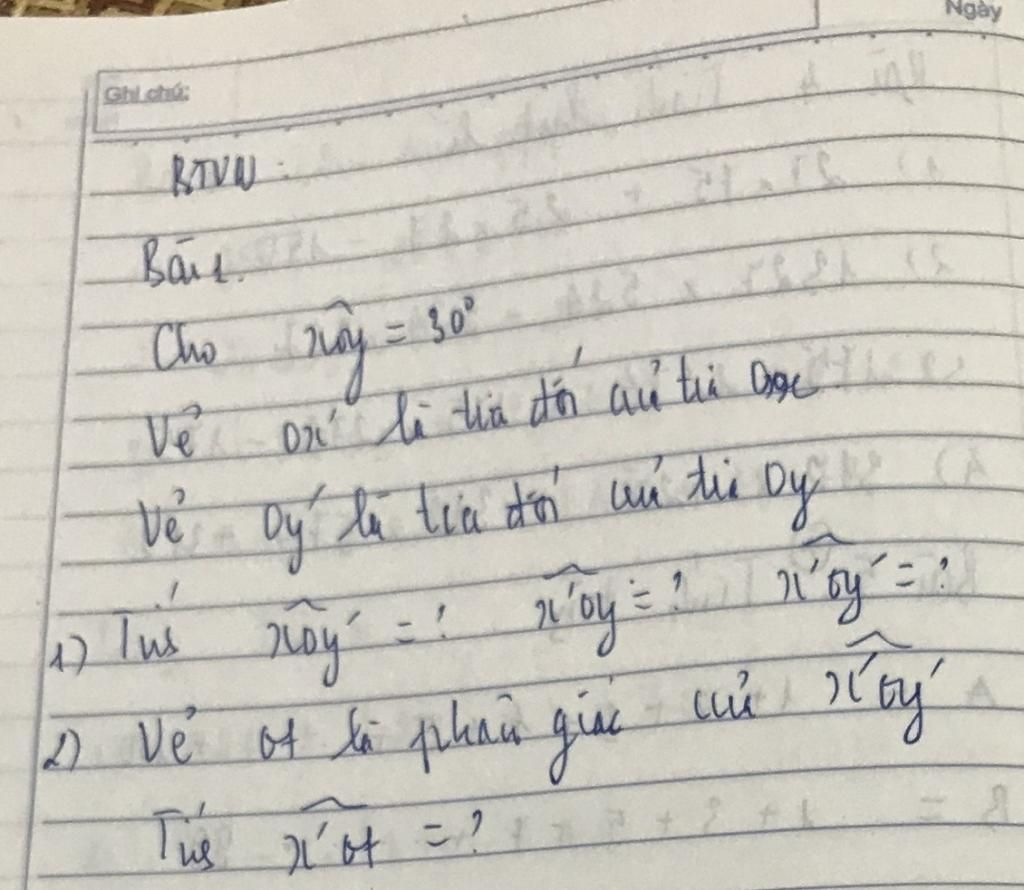 Ngày
Ghi chú:
BTVN:
Bài 1.
Cho xOy = 30°
Vẽ Ox' là tia đối của tia Ox
Vẽ Oy' là tia đối của tia Oy
1) Tính xOy' = ? x'Oy = ? x'Oy' = ?
2) Vẽ Ot là phân giác của x'Oy'
Tính x'Ot = ?